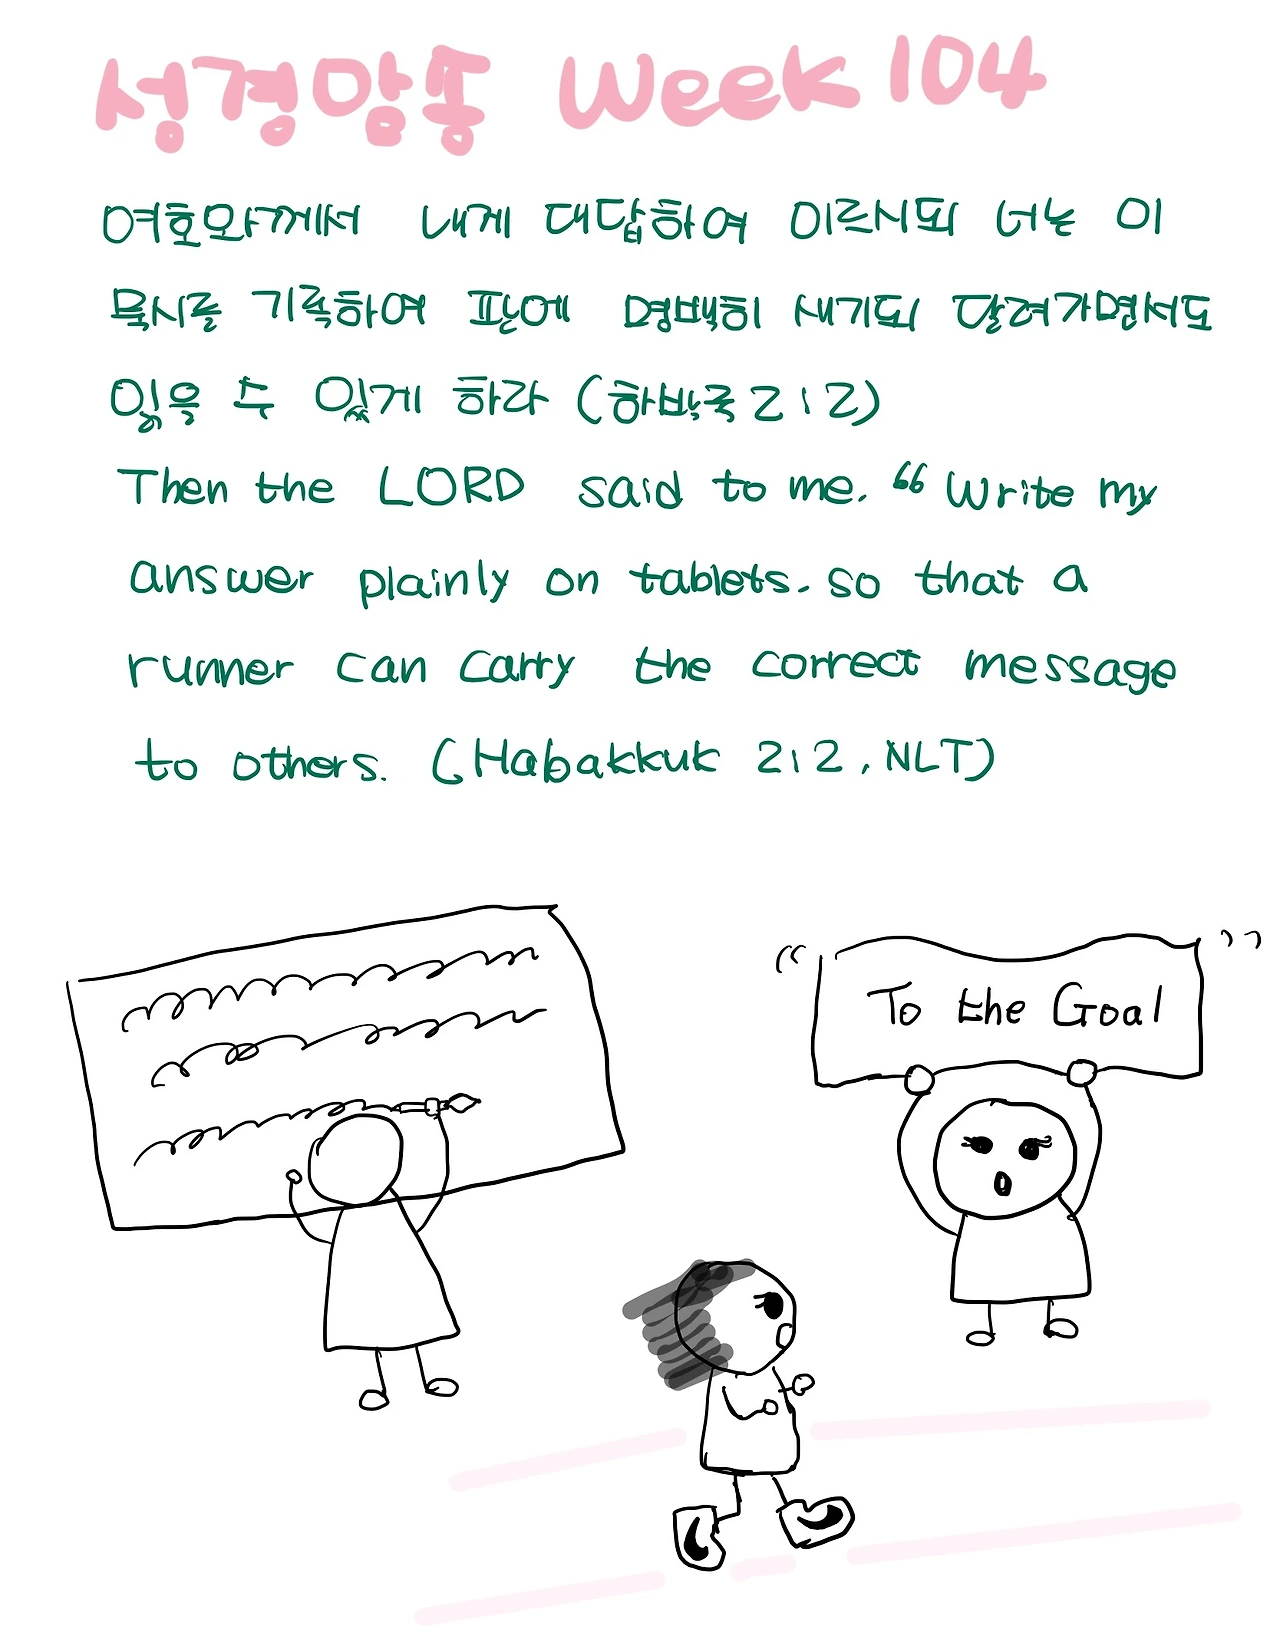 성경암송 Week 104
여호와께서 내게 대답하여 이르시되 너는 이
묵시를 기록하여 판에 명백히 새기되 달려가면서도
읽을 수 있게 하라 (하박국 2:2)
Then the LORD said to me. “ Write my
answer plainly on tablets. so that a
runner can carry the correct message
to others. (Habakkuk 2:2, NLT)
“ To the Goal ”